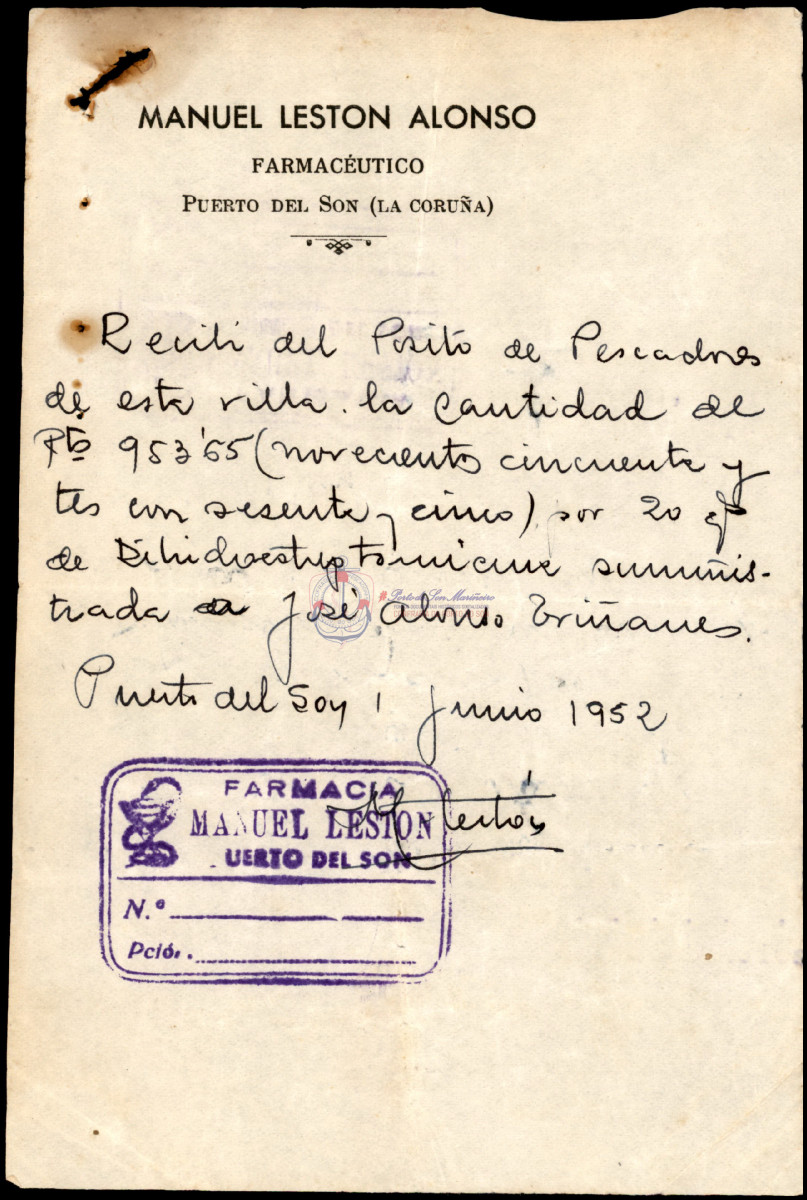 MANUEL LESTON ALONSO
FARMACÉUTICO
PUERTO DEL SON (LA CORUÑA)
Recibi del Posito de Pescadores
de esta villa. la cantidad de
Pts 953'65 (novecientos cincuenta y
tes con sesenta y cinco) por 20 gr
de Dihidroestreptomicina suminis-
trada a José Alonso Triñanes.
Puerto del Son 1 Junio 1952
M Lestón
FARMACIA
MANUEL LESTON
UERTO DEL SON
N.º
Pció.
Porto do Son Mariñeiro